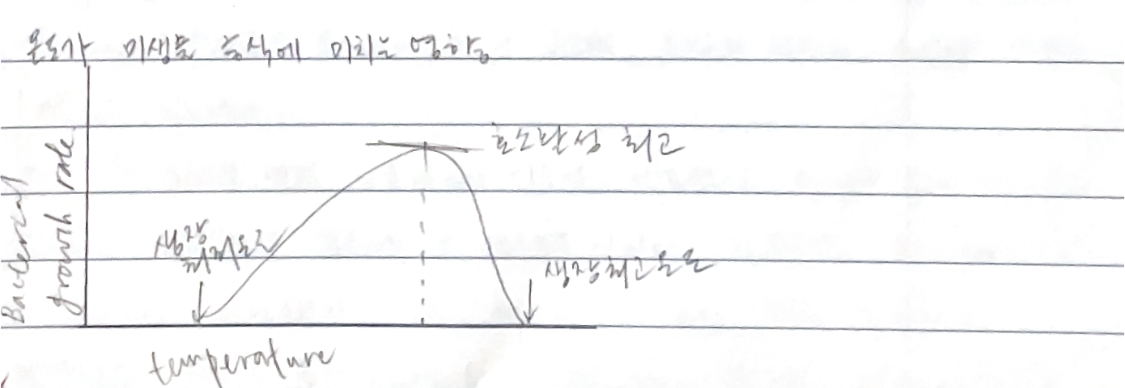 온도가 미생물 증식에 미치는 영향
효소활성 최고
생장
최저온도
생장최고온도
Bacterial
growth rate
temperature